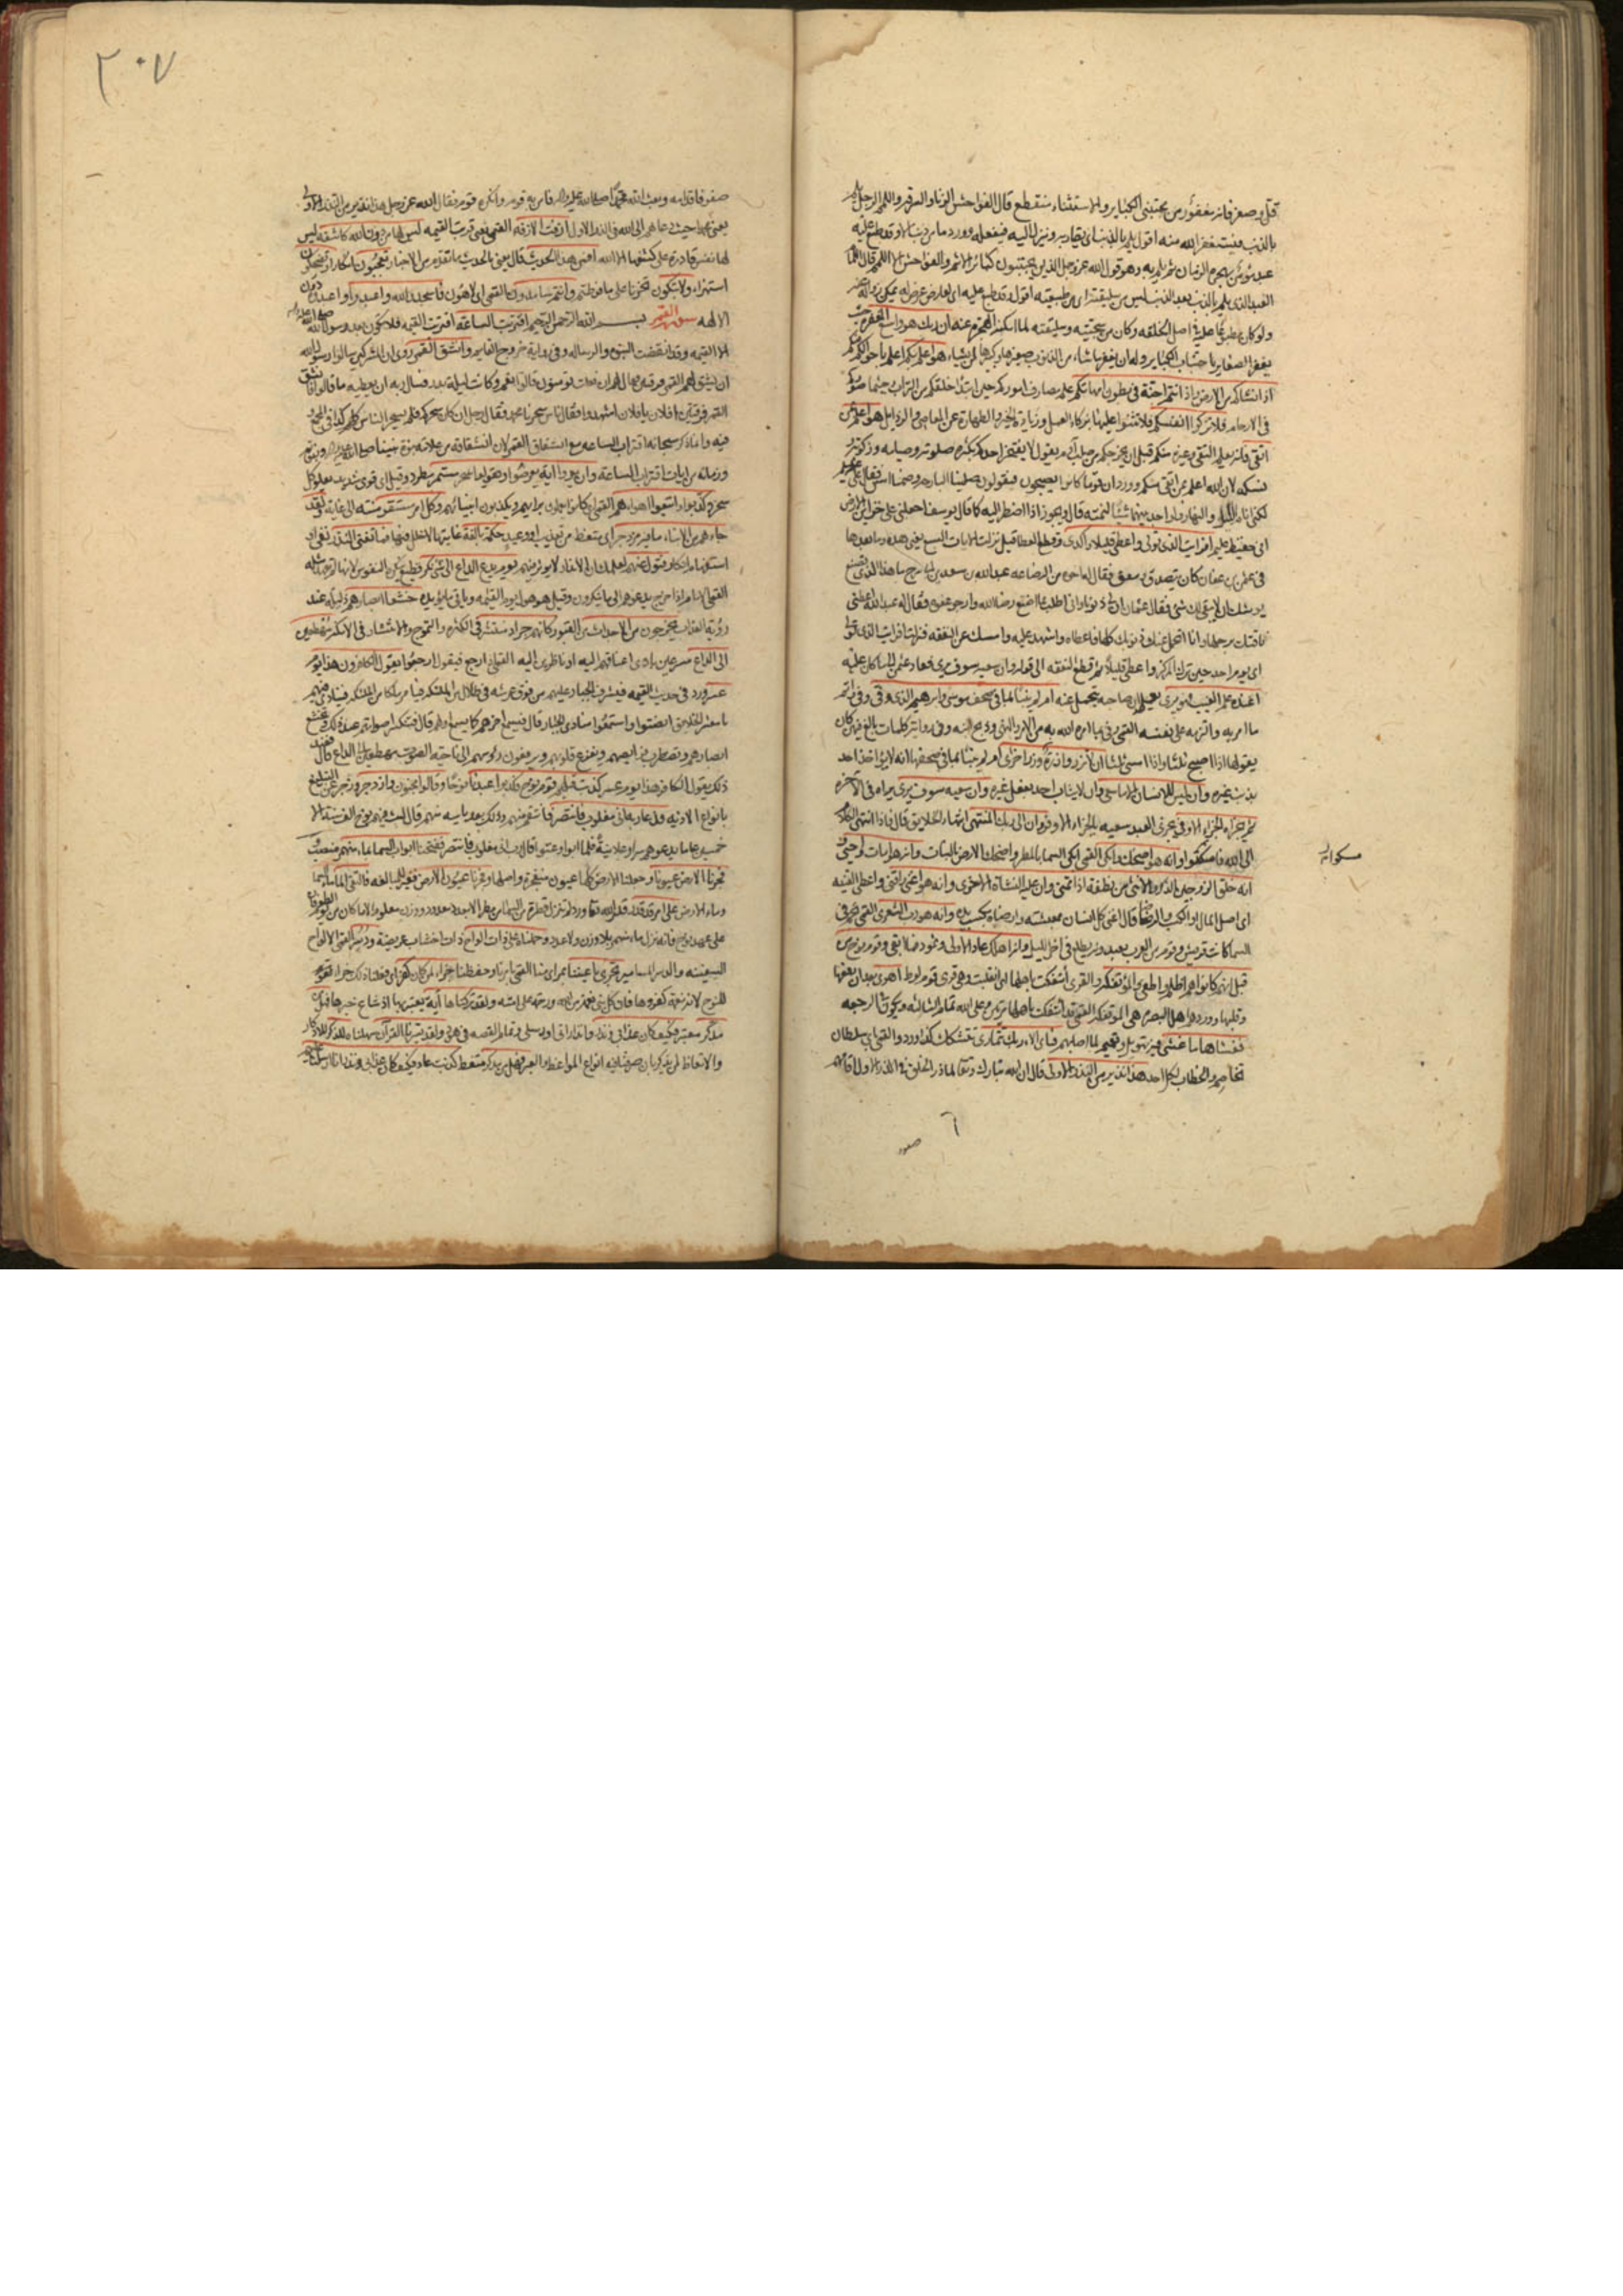 قل وصغر فانه مغفور من مجتنبي الكباير والاستثناء منقطع قال الفواحش الزنا والسرقه واللمم الرجل يلم
بالذنب فيستغفر الله منه اقول يلم بالذنب اي يقاربه وينزل اليه فيفعله وورد ما من ذنب الا وقد طبع عليه
عبد مؤمن يهجره الزمان ثم يلم به وهو قول الله عز وجل الذين يجتنبون كبائر الاثم والفواحش الا اللمم قال اللمام
العبد الذي يلم بالذنب بعد الذنب ليس من سليقته اي من طبيعته اقول وقد طبع عليه اي لعارض عرض له يمكن زواله عنه
ولو كان مطبوعا عليه في اصل الخلقه وكان من سجيته وسليقته لما امكنه الهجرة عنه ان ربك هو واسع المغفرة حيث
يغفر الصغاير باجتناب الكباير وله ان يغفر ما شاء من الذنوب صغيرها وكبيرها لمن يشاء هو اعلم بكم اعلم باحوالكم منكم
اذ انشاكم من الارض واذ انتم اجنة في بطون امهاتكم علم مصارف اموركم حين ابتدا خلقكم من التراب وحيثما صوركم
في الارحام فلا تزكوا انفسكم فلا تثنوا عليها بزكاء العمل وزيادة الخير والطهارة عن المعاصي والرذايل هو اعلم بمن
اتقى فانه يعلم التقي وغيره منكم قبل ان يخرجكم من صلب آدم يقول لا يفتخر احدكم بكثرة صلوته وصيامه وزكوته
ونسكه لان الله اعلم بمن اتقى منكم وورد ان قوما كانوا يصبحون فيقولون صلينا البارحه وصمنا امس فقال علي
لكني انام الليل والنهار ولو اجد بينهما شيئا لنمته قال ويجوز اذا اضطر اليه كما قال يوسف اجعلني على خزاين الارض
اني حفيظ عليم افرايت الذي تولى واعطى قليلا واكدى وقطع العطا قيل نزلت الايات السبع يعني هذه وما بعدها
في عثمن بن عفان كان يتصدق وينفق فقال له اخوه من الرضاعه عبد الله بن سعد بن ابي سرح ما هذا الذي تصنع
يوشك ان لا يبقى لك شيء فقال عثمان ان لي ذنوبا واني اطلب بما اصنع رضا الله وارجو عفوه فقال له عبد الله اعطني
ناقتك برحلها وانا اتحمل عنك ذنوبك كلها فاعطاه واشهد عليه وامسك عن النفقه فنزلت افرايت الذي تولى
اي يوم احد حين ترك المركز واعطى قليلا ثم قطع النفقه الى قوله وان سعيه سوف يرى فعاد عثمن الى ما كان عليه
اعنده علم الغيب فهو يرى يعلم ان صاحبه يتحمل عنه ام لم ينبا بما في صحف موسى وابرهيم الذي وفى وفى واتم
ما امر به والتزمه على نفسه القمي وفى بما امره الله به من الامر والنهي وذبح ابنه وفي رواية كلمات بالغ فيهن كان
يقولها اذا اصبح ثلثا واذا امسى ثلثا ان لا تزر وازرة وزر اخرى ام لم ينبا بما في صحفها انه لا يؤاخذ احد
بذنب غيره وان ليس للانسان الا ما سعى وان لا يثاب احد بفعل غيره وان سعيه سوف يرى يراه في الآخرة
ثم يجزاه الجزاء الاوفى يجزى العبد سعيه بالجزاء الاوفر وان الى ربك المنتهى انتهاء الخلايق قال فاذا انتهى الكلام
الى الله فامسكوا وانه هو اضحك وابكى القمي ابكى السما بالمطر واضحك الارض بالنبات وانه هو امات واحيى و
انه خلق الزوجين الذكر والانثى من نطفة اذا تمنى وان عليه النشاة الاخرى وانه هو اغنى واقنى واعطى القنيه
اي اصل المال او الكسب والرضا قال اغنى كل انسان بمعيشته وارضاه بكسب يده وانه هو رب الشعرى القمي نجم في
السما كانت قريش وقوم من العرب يعبدونه يطلع في اخر الليل وانه اهلك عادا الاولى وثمود فما ابقى وقوم نوح من
قبل انهم كانوا هم اظلم واطغى والمؤتفكة والقرى ائتفكت باهلها اي انقلبت وهي قرى قوم لوط اهوى بعد ان رفعها
وقلبها وورد هم اهل البصرة هي المؤتفكة القمي قد ائتفكت باهلها مرتين وعلى الله تمام الثالثة ويكون في الرجعه
فغشاها ما غشى فيه تهويل وتعميم لما اصابهم فباي الاء ربك تتمارى تتشكك كذا ورد والقمي باي سلطان
تخاصم والخطاب لكل احد هذا نذير من النذر الاولى قال ان الله تبارك وتعالى لما ذرا الخلق في الذر الاول اقامهم
مسكوا
صفو
٢٠٧
صفوفا قدامه وبعث الله محمدا صلى الله عليه وآله فامن به قوم وانكره قوم فقال الله عز وجل هذا نذير من النذر الاولى
يعني محمدا حيث دعاهم الى الله في الذر الاول ازفت الازفة القمي يعني قربت القيمه ليس لها من دون الله كاشفة ليس
لها نفس قادرة على كشفها الا الله افمن هذا الحديث قال يعني بالحديث ما تقدم من الاخبار تعجبون انكارا وتضحكون
استهزاء ولا تبكون تحزنا على ما فرطتم وانتم سامدون القمي اي لاهون فاسجدوا لله واعبدوا واعبدوه دون
الالهه سورة القمر بسم الله الرحمن الرحيم اقتربت الساعة اقتربت القيمه فلا يكون بعد رسول الله صلى الله عليه وآله
الا القيمه وقد انقضت النبوة والرساله وفي رواية خروج القايم وانشق القمر روي ان المشركين سالوا رسول الله
ان يشق لهم القمر فرقتين فقال لهم ان فعلت تؤمنون قالوا نعم وكانت ليلة بدر فسال ربه ان يعطيه ما قالوا فانشق
القمر فرقتين يا فلان يا فلان اشهدوا فقال ناس سحرنا محمد فقال رجل ان كان سحركم فلم يسحر الناس كلهم
فيه وانما ذكر سبحانه اقتراب الساعه مع انشقاق القمر لان انشقاقه من علامة نبوة نبينا صلى الله عليه وآله ونبوته
وزمانه من ايات اقتراب الساعة وان يروا اية يعرضوا ويقولوا سحر مستمر مطرد وقيل اي قوي شديد يعلو كل
سحر وكذبوا واتبعوا اهواءهم القمي اي كانوا يعملون برايهم ويكذبون انبياءهم وكل امر مستقر منته الى غاية ولقد
جاءهم من الانباء ما فيه مزدجر اي متعظ من تعذيب او وعيد حكمة بالغة غايتها لا خلل فيها فما تغني النذر نفي او
استفهام انكار فتول عنهم لعلمك ان الانذار لا يؤثر فيهم يوم يدع الداع الى شيء نكر فظيع تنكره النفوس لانها لم تعهد مثله
القمي الامام اذا خرج يدعوهم الى ما ينكرون وقيل هو هول يوم القيمه وياتي ما يؤيده خشعا ابصارهم ذليلة عند
رؤية العذاب يخرجون من الاجداث من القبور كانهم جراد منتشر في الكثرة والتموج والانتشار في الامكنة مهطعين
الى الداع مسرعين مادي اعناقهم اليه او ناظرين اليه القمي اذا رجع فيقول ارجعوا يقول الكافرون هذا يوم
عسر ورد في حديث القيمه فيشرف الجبار عليهم من فوق عرشه في ظلال من الملائكة فيامر ملكا من الملائكة فينادي فيهم
يا معشر الخلايق انصتوا واستمعوا منادي الجبار قال فيسمع اخرهم كما يسمع اولهم قال فتنكسر اصواتهم عند ذلك وتخشع
ابصارهم وتضطرب فرايصهم وتفزع قلوبهم ويرفعون رؤوسهم الى ناحية الصوت مهطعين الى الداع قال فعند
ذلك يقول الكافر هذا يوم عسر كذبت قبلهم قوم نوح فكذبوا عبدنا نوحا وقالوا مجنون وازدجر وزجر عن التبليغ
بانواع الاذيه فدعا ربه اني مغلوب فانتصر فانتقم منهم وذلك بعد ياسه منهم قال لبث فيهم نوح الف سنة الا
خمسين عاما يدعوهم سرا وعلانية فلما ابوا وعتوا قال رب اني مغلوب فانتصر ففتحنا ابواب السماء بماء منهمر منصب
وفجرنا الارض عيونا وجعلنا الارض كلها عيون متفجرة واصله وفجرنا عيون الارض فغير للمبالغه فالتقى الماء ماء السما
وماء الارض على امر قد قدر قدره الله تعالى ورد لم تنزل قطرة من السماء من مطر الا بعدد معدود ووزن معلوم الا ما كان من يوم الطوفان
على عهد نوح فانه نزل ماء منهمر بلا وزن ولا عدد وحملناه على ذات الواح ذات اخشاب عريضة ودسر القمي الالواح
السفينه والدسر المسامير تجري باعيننا بمراى منا القمي بامرنا وحفظنا جزاء لمن كان كفر اي فعلنا ذلك جزاء
لنوح لانه نعمة كفروها فان كل نبي نعمة من الله ورحمة على امته ولقد تركناها آية يعتبر بها اذ شاع خبرها فهل من
مدكر معتبر فكيف كان عذابي ونذر وانذاراتي او رسلي وتمام القصه في هود ولقد يسرنا القرآن سهلناه للذكر للاذكار
والاتعاظ لمن يذكر بان صرفنا فيه انواع المواعظ والعبر فهل من مدكر متعظ كذبت عاد فكيف كان عذابي ونذر انا ارسلنا عليهم